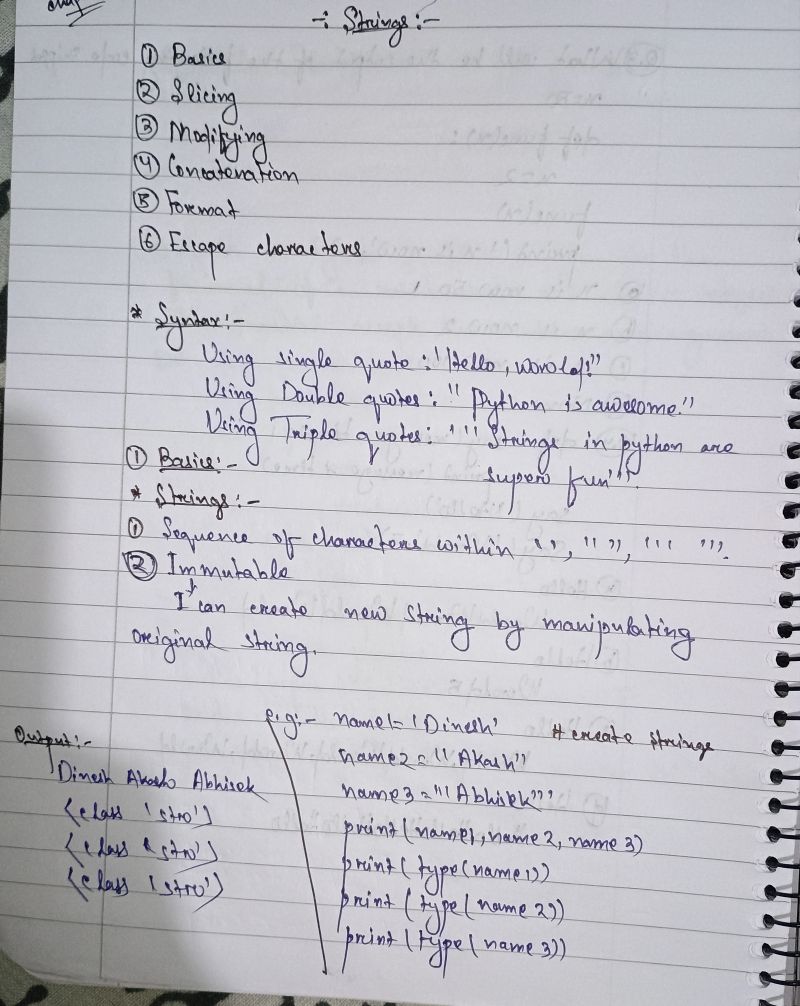 -: Strings :-
① Basics
② Slicing
③ Modifying
④ Concatenation
⑤ Format
⑥ Escape characters
* Syntax :-
Using single quote : 'Hello, world!"
Using Double quotes : " Python is awesome."
Using Triple quotes: ''' Strings in python are
super fun'''.
① Basics :-
* Strings :-
① Sequence of characters within ' ', " ", ''' '''.
② Immutable
I can create new string by manipulating
original string.
e.g:- name1= 'Dinesh' # create strings
name2 = "Akash"
name3 = '''Abhisek'''
print(name1, name2, name3)
print(type(name1))
print(type(name2))
print(type(name3))
Output :-
Dinesh Akash Abhisek
<class 'str'>
<class 'str'>
<class 'str'>